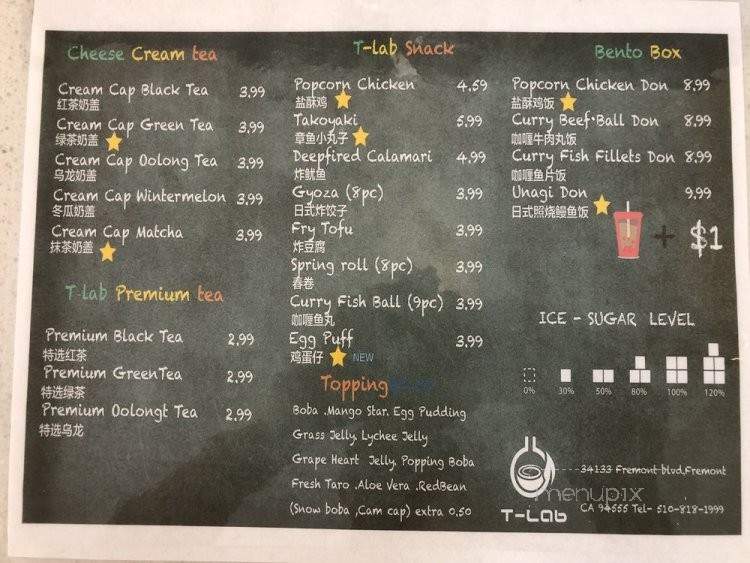 Cheese Cream tea
Cream Cap Black Tea 3.99
红茶奶盖
Cream Cap Green Tea 3.99
绿茶奶盖
Cream Cap Oolong Tea 3.99
乌龙奶盖
Cream Cap Wintermelon 3.99
冬瓜奶盖
Cream Cap Matcha 3.99
抹茶奶盖
T-lab Premium tea
Premium Black Tea 2.99
特选红茶
Premium GreenTea 2.99
特选绿茶
Premium Oolongt Tea 2.99
特选乌龙
T-lab Snack
Popcorn Chicken 4.59
盐酥鸡
Takoyaki 5.99
章鱼小丸子
Deepfired Calamari 4.99
炸鱿鱼
Gyoza (8pc) 3.99
日式炸饺子
Fry Tofu 3.99
炸豆腐
Spring roll (8pc) 3.99
春卷
Curry Fish Ball (9pc) 3.99
咖喱鱼丸
Egg Puff 3.99
鸡蛋仔 NEW
Topping
Boba .Mango Star. Egg Pudding
Grass Jelly, Lychee Jelly
Grape Heart Jelly, Popping Boba
Fresh Taro .Aloe Vera .RedBean
(Snow boba ,Cam cap) extra 0.50
Bento Box
Popcorn Chicken Don 8.99
盐酥鸡饭
Curry Beef·Ball Don 8.99
咖喱牛肉丸饭
Curry Fish Fillets Don 8.99
咖喱鱼片饭
Unagi Don 9.99
日式照烧鳗鱼饭
+ $1
ICE - SUGAR LEVEL
0% 30% 50% 80% 100% 120%
34133 Fremont blvd,Fremont
menupix
T-Lab CA 94555 Tel- 510-818-1999